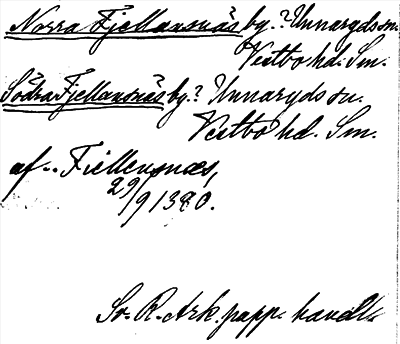 Norra Fjellansnäs by.? Unnaryds sn.
Vestbo hd. Sm.
Södra Fjellansnäs by.? Unnaryds sn.
Vestbo hd. Sm.
af.. Fiellensnæs,
29/9 1380.
Sv. R. Ark. papp. handl.